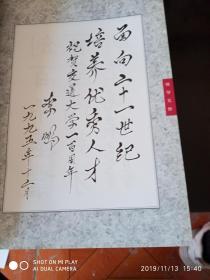 面向二十一世纪
培养优秀人才
祝贺交通大学一百周年
李鹏
一九九五年十二月
SHOT ON MI PLAY
AI DUAL CAMERA
2019/11/13 15:40